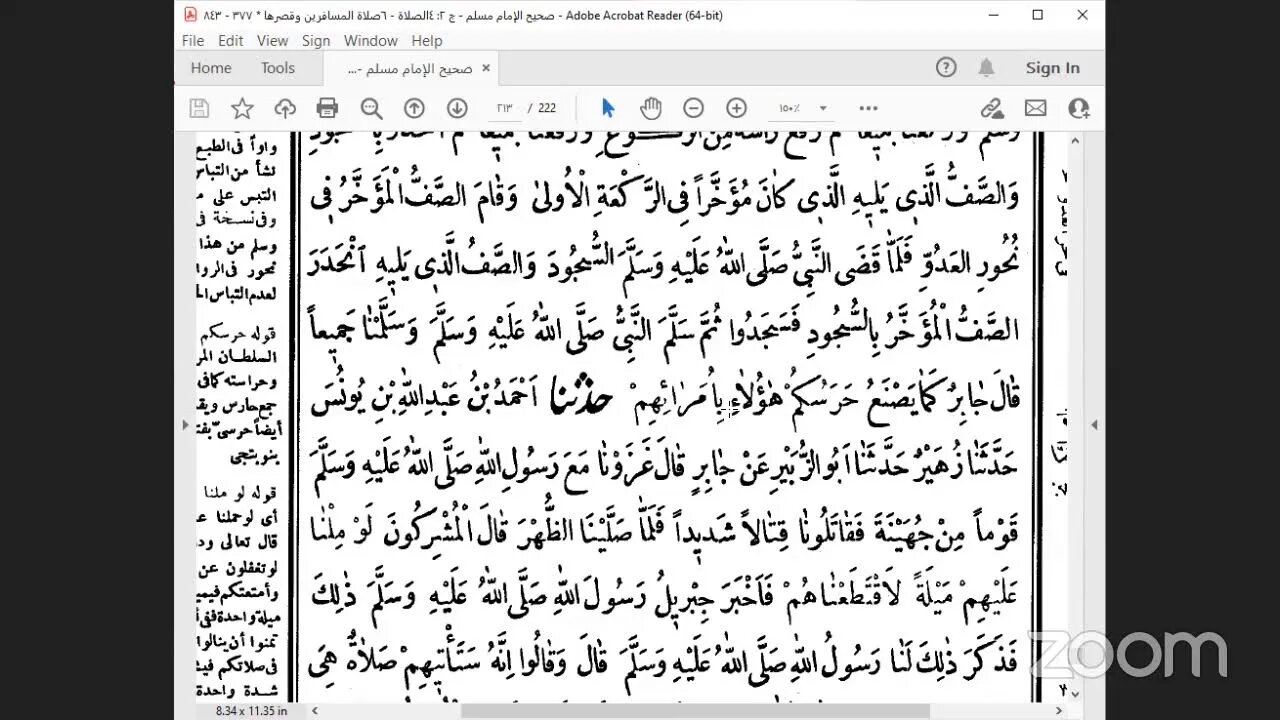 صحيح الإمام مسلم - ج ٢: ٤الصلاة - ٦صلاة المسافرين وقصرها * ٣٧٧ - ٨٤٣ - Adobe Acrobat Reader (64-bit)
File Edit View Sign Window Help
Home Tools صحيح الإمام مسلم -ج... Sign In
٢١٣ / 222 ١٥٠٪
وَالصَّفُّ الَّذِى يَلِيهِ الَّذِى كَانَ مُؤَخَّراً فِى الرَّكْعَةِ الْأُولىٰ وَقَامَ الصَّفُّ الْمُؤَخَّرُ فِى
نُحُورِ الْعَدُوِّ فَلَمَّا قَضَى النَّبِىُّ صَلَّى اللهُ عَلَيْهِ وَسَلَّمَ السُّجُودَ وَالصَّفُّ الَّذِى يَلِيهِ ٱنْحَدَرَ
الصَّفُّ الْمُؤَخَّرُ بِالسُّجُودِ فَسَجَدُوا ثُمَّ سَلَّمَ النَّبِىُّ صَلَّى اللهُ عَلَيْهِ وَسَلَّمَ وَسَلَّمْنَا جَمِيعاً
قَالَ جَابِرٌ كَمَا يَصْنَعُ حَرَسُكُمْ هٰؤُلَاءِ بِأُمَرَائِهِمْ حدثنا اَحْمَدُ بْنُ عَبْدِ اللهِ بْنِ يُونُسَ
حَدَّثَنَا زُهَيْرٌ حَدَّثَنَا اَبُو الزُّبَيْرِ عَنْ جَابِرٍ قَالَ غَزَوْنَا مَعَ رَسُولِ اللهِ صَلَّى اللهُ عَلَيْهِ وَسَلَّمَ
قَوْماً مِنْ جُهَيْنَةَ فَقَاتَلُونَا قِتَالاً شَدِيداً فَلَمَّا صَلَّيْنَا الظُّهْرَ قَالَ الْمُشْرِكُونَ لَوْ مِلْنَا
عَلَيْهِمْ مَيْلَةً لَاقْتَطَعْنَاهُمْ فَاَخْبَرَ جِبْرِيلُ رَسُولَ اللهِ صَلَّى اللهُ عَلَيْهِ وَسَلَّمَ ذٰلِكَ
فَذَكَرَ ذٰلِكَ لَنَا رَسُولُ اللهِ صَلَّى اللهُ عَلَيْهِ وَسَلَّمَ قَالَ وَقَالُوا اِنَّهُ سَتَأْتِيهِمْ صَلَاةٌ هِىَ
واواً فى الطبع
نشأ من التباس
التبس على
وفى نسخة فى
وسلم من هذا
نحور فى الروا
لعدم التباس
قوله حرسكم
السلطان المر
وحراسته كافى
جمع حارس ويقـ
أيضاً حرسىّ بفتـ
قوله لو ملنا
أى لو حملنا
قال تعالى ود
لو تغفلون عن
وأمتعتكم فيميـ
ميلة واحدة فى
تمنوا أن ينالوا
فى صلاتكم فيـ
شدة واحدة
zoom
8.34 x 11.35 in